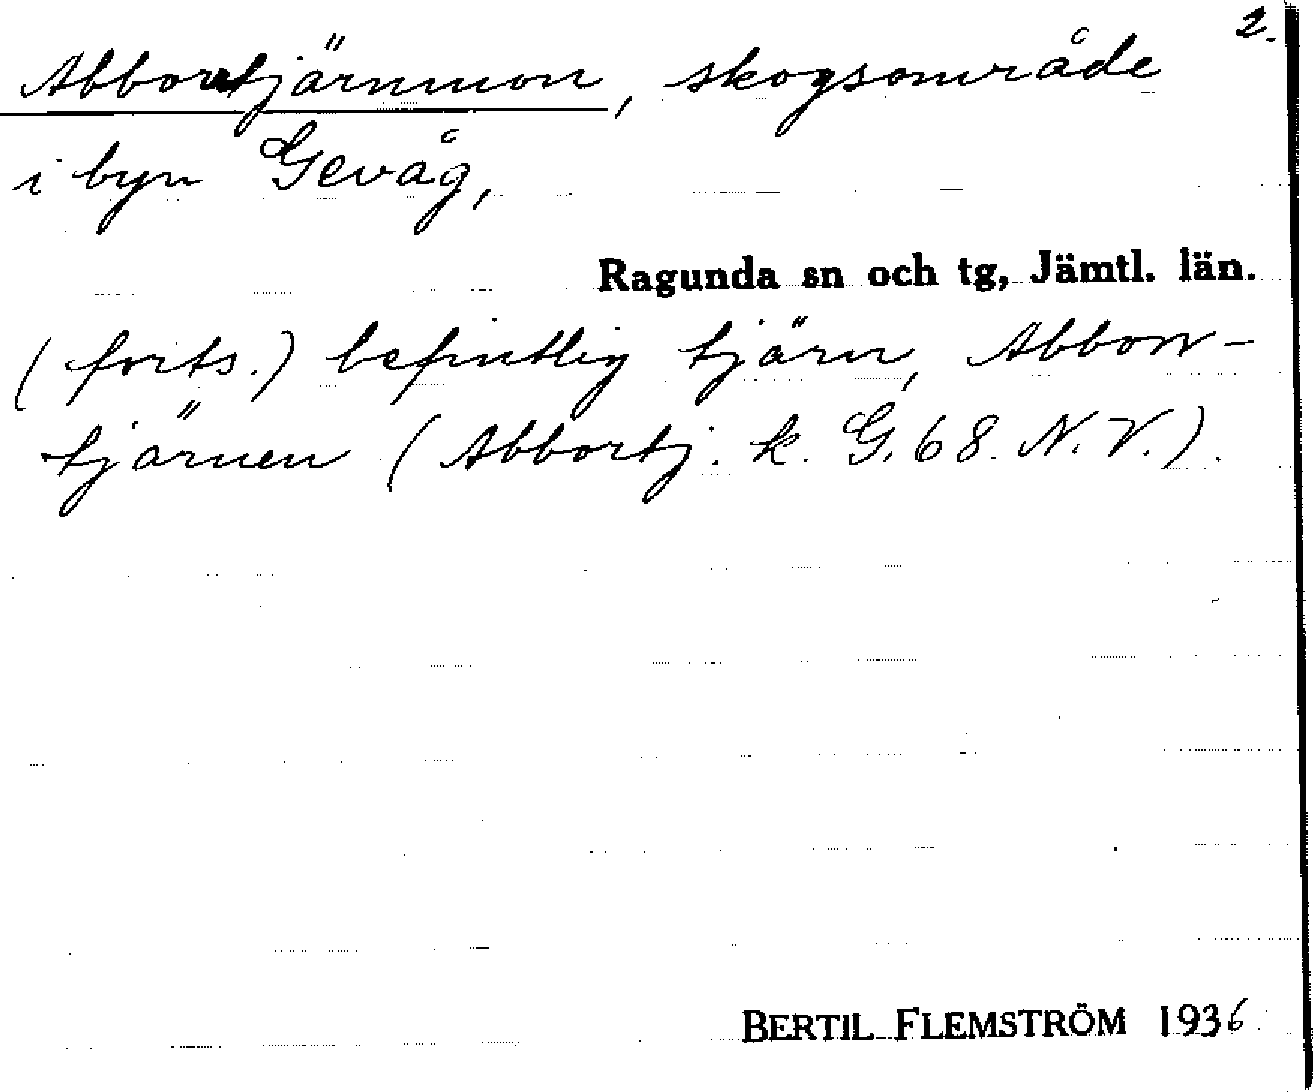 2.
Abborrtjärnmon, skogsområde
i byn Gevåg,
Ragunda sn och tg, Jämtl. län.
(forts.) befintlig tjärn, Abborr-
tjärnen (Abbortj. k. G. 68. N. V.).
BERTIL FLEMSTRÖM 1936